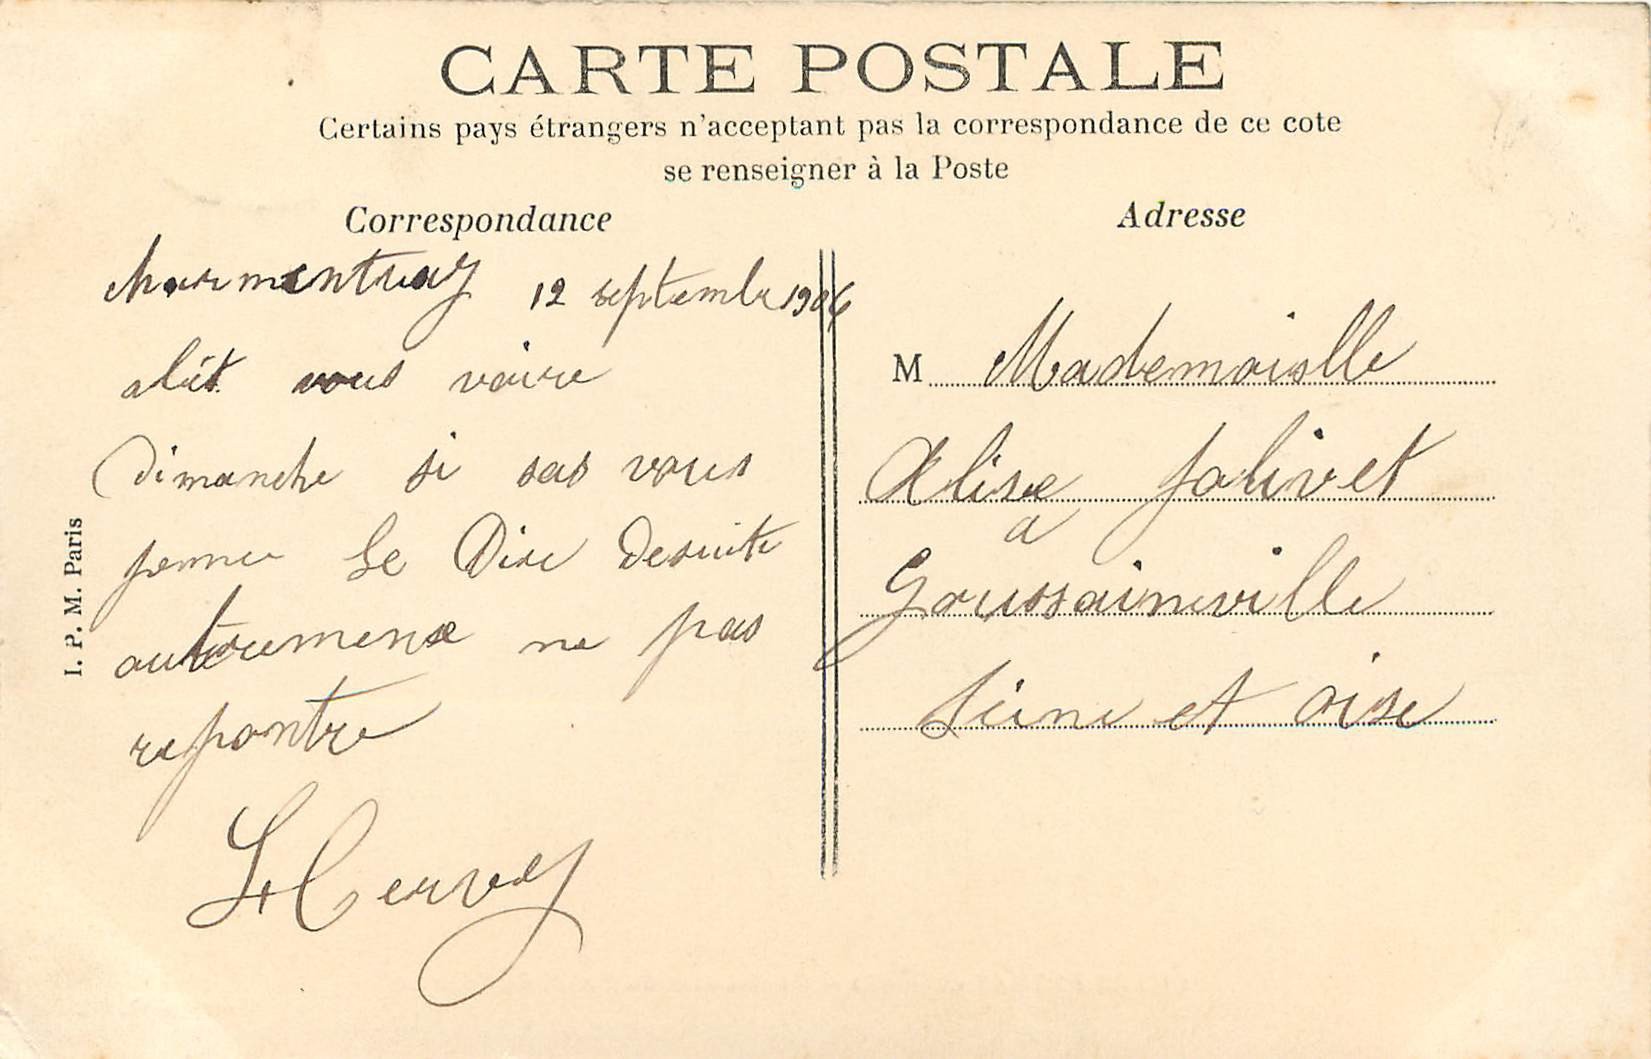 CARTE POSTALE
Certains pays étrangers n'acceptant pas la correspondance de ce cote
se renseigner à la Poste
Correspondance
Adresse
charmentray 12 septembre 1906
alét vous voire
Dimanche si sas vous
le Dire desuite
autremene ne pas
repontre
M Mademoislle
Alise Jolivet
a
Goussainville
Seine et oise
I. P. M. Paris